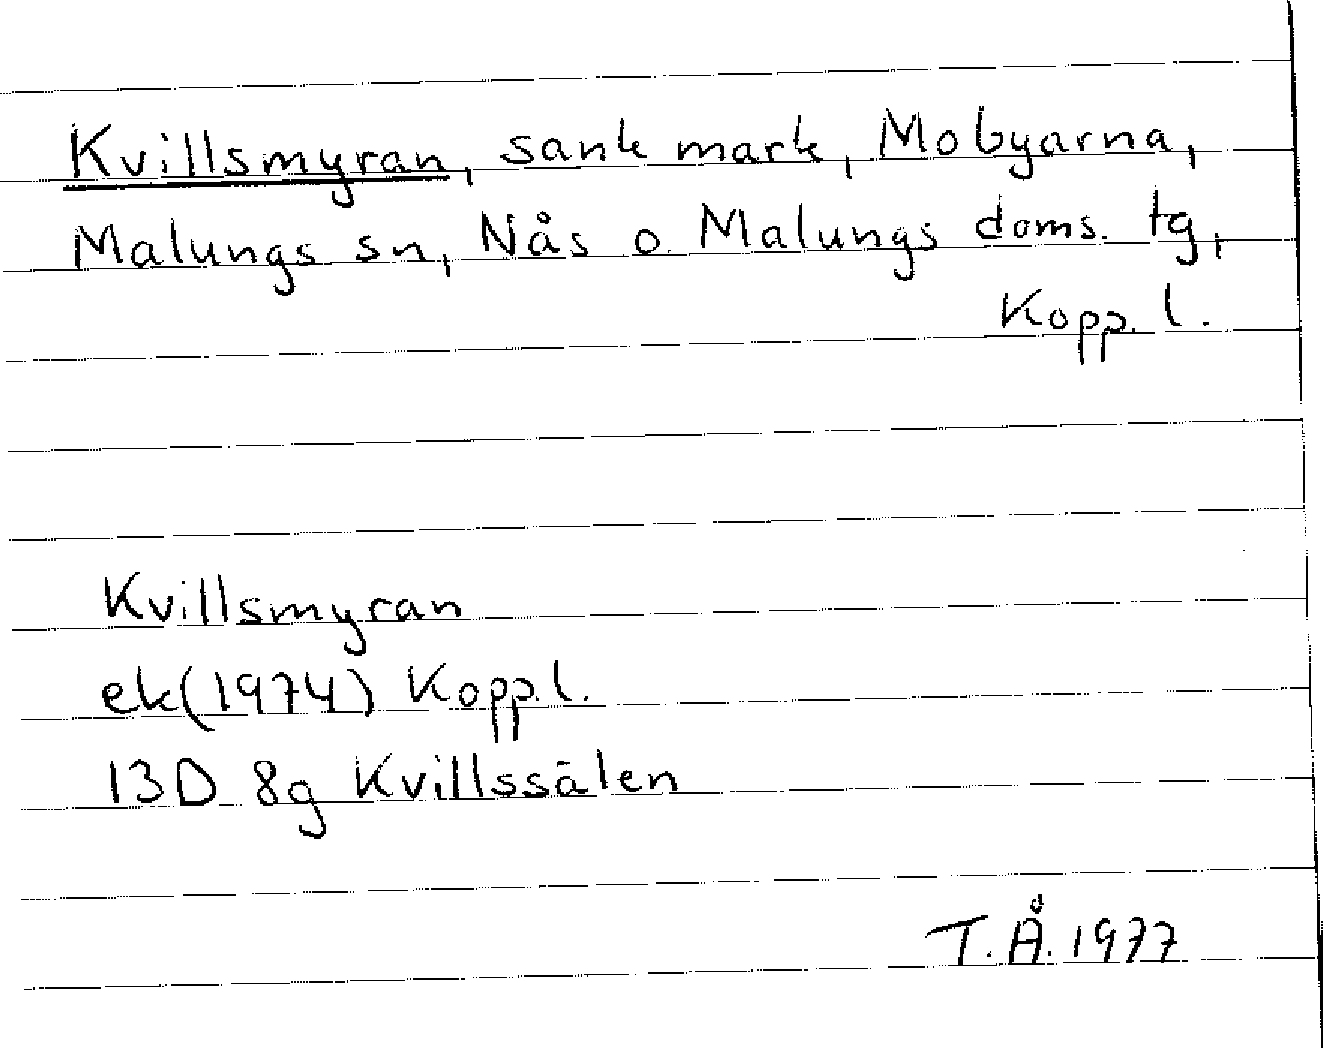 Kvillsmyran, sank mark, Mobyarna,
Malungs sn, Nås o. Malungs doms. tg,
Kopp. l.
Kvillsmyran
ek(1974) Kopp.l.
13D 8g Kvillssälen
T.Å. 1977